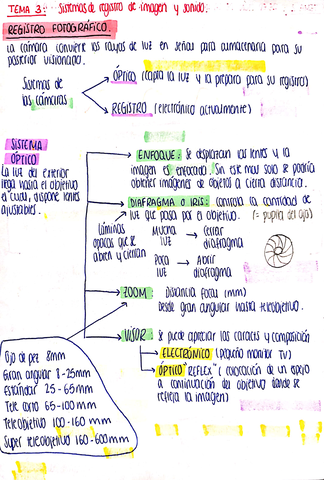 TEMA 3: Sistemas de registro de imagen y sonido.
REGISTRO FOTOGRÁFICO.
La cámara convierte los rayos de luz en señas para almacenarla para su
posterior visionado.
Sistemas de
las cámaras
ÓPTICO (capta la luz y la prepara para su registro)
REGISTRO (electrónico actualmente)
SISTEMA
ÓPTICO
La luz del exterior
llega hasta el objetivo
el cual, dispone lentes
ajustables.
ENFOQUE: se desplazan las lentes y la
imagen es enfocada. Sin este mov solo se podría
obtener imágenes de objetos a cierta distancia.
DIAFRAGMA O IRIS: controla la cantidad de
luz que pasa por el objetivo. (= pupila del ojo)
láminas
opacas que se
abren y cierran
Mucha luz → Cerrar diafragma
Poca luz → Abrir diafragma
ZOOM: Distancia focal (mm)
desde gran angular hasta teleobjetivo.
VISOR: se puede apreciar las caracts y composición
ELECTRÓNICO (pequeño monitor TV)
ÓPTICO "REFLEX" (colocación de un espejo
a continuación del objetivo donde se
refleja la imagen)
Ojo de pez 8mm
Gran angular 8-25mm
Estándar 25-65mm
Tele corto 65-100mm
Teleobjetivo 100-160mm
Super teleobjetivo 160-600mm